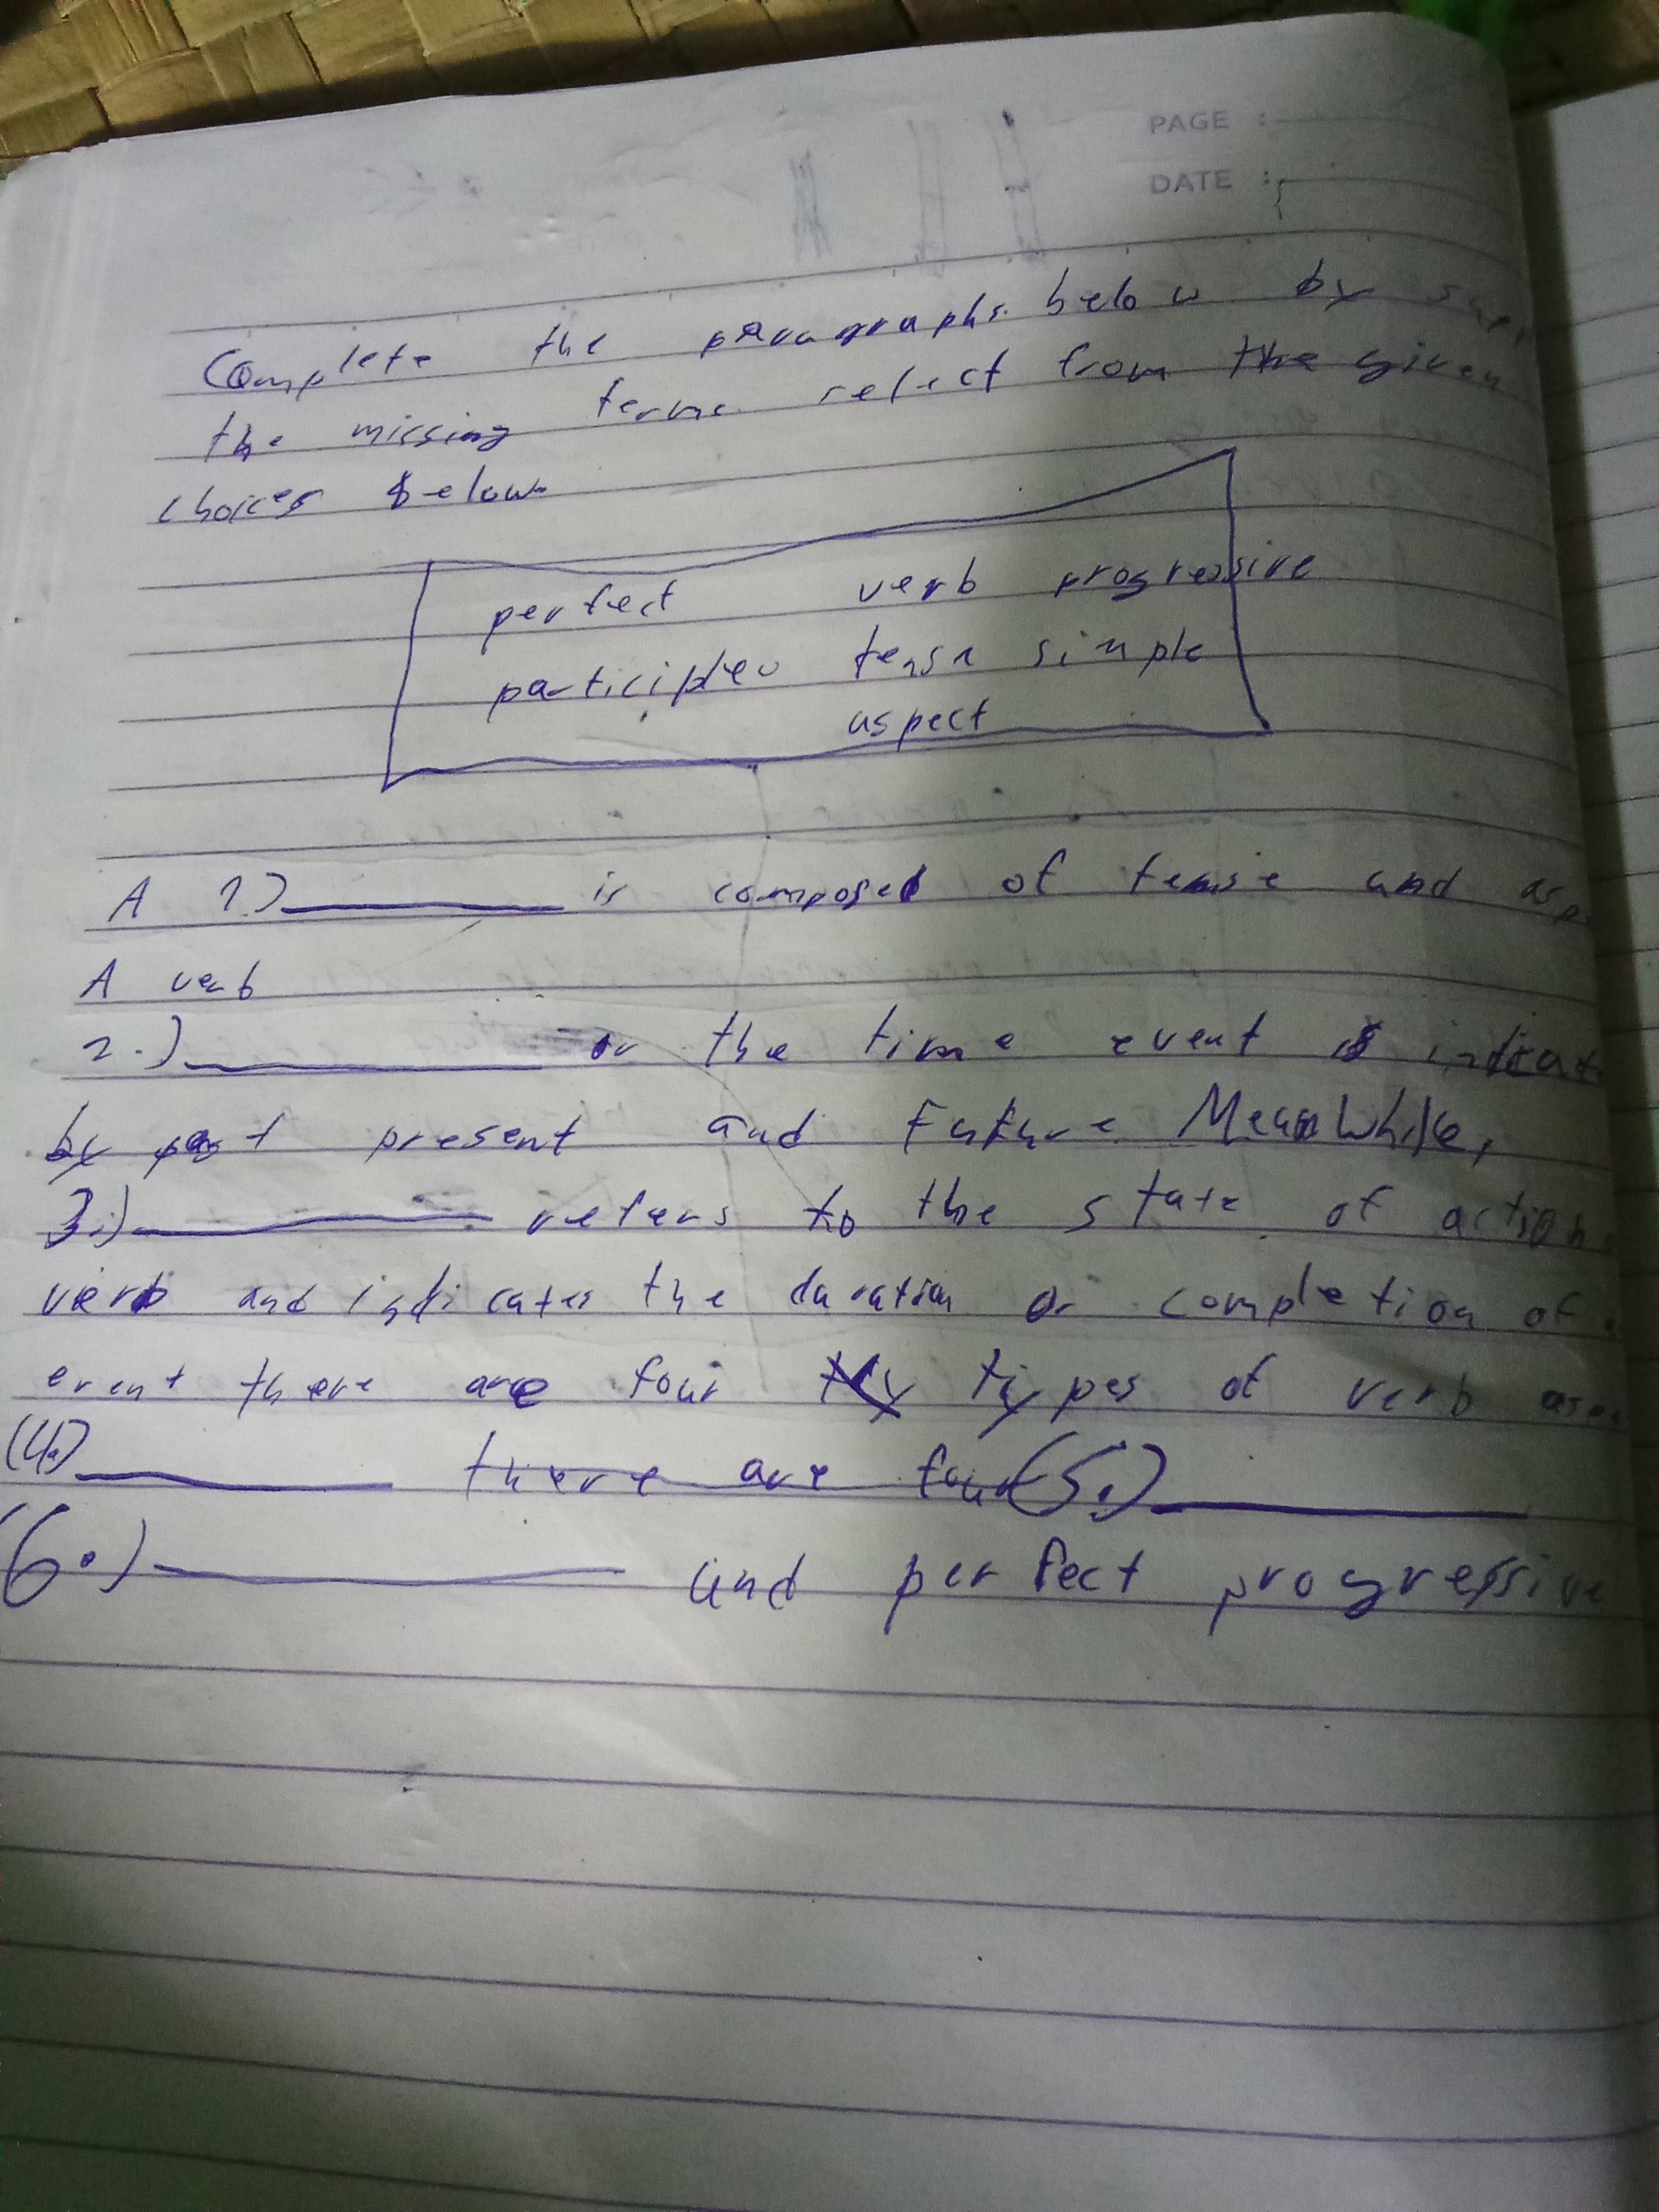 PAGE :
DATE :
Complete the paragraphs below by
the missing terms select from the given
choices below
perfect verb progressive
participles tense simple
aspect
A 1.) is composed of tense and
A verb
2.) or the time event is
by past present and Future Meanwhile,
3.) refers to the state of action
verb and indicates the duration or completion of
event there are four types of verb
(4.) there are four (5.)
(6.) and perfect progressive